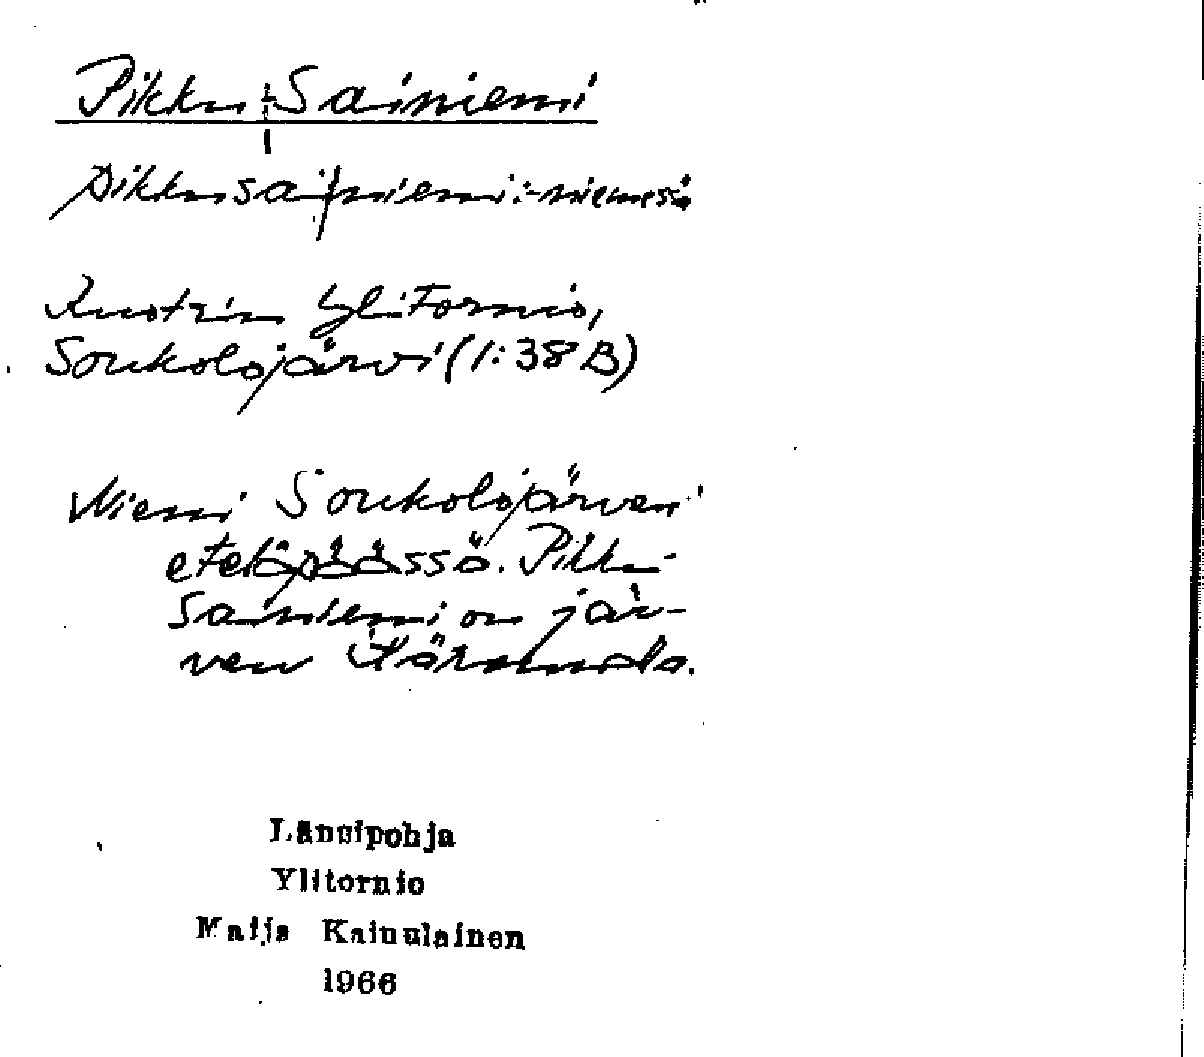 Pikku-Sainiemi
pikkusainiemi:-niemessä
Ruotsin Ylitornio,
Soukolojärvi (1:38 B)
Niemi Soukolojärven
eteläpäässä. Pikku-
Sainiemi on jär-
ven itärannalla.
Länsipohja
Ylitornio
Maija Kainulainen
1966